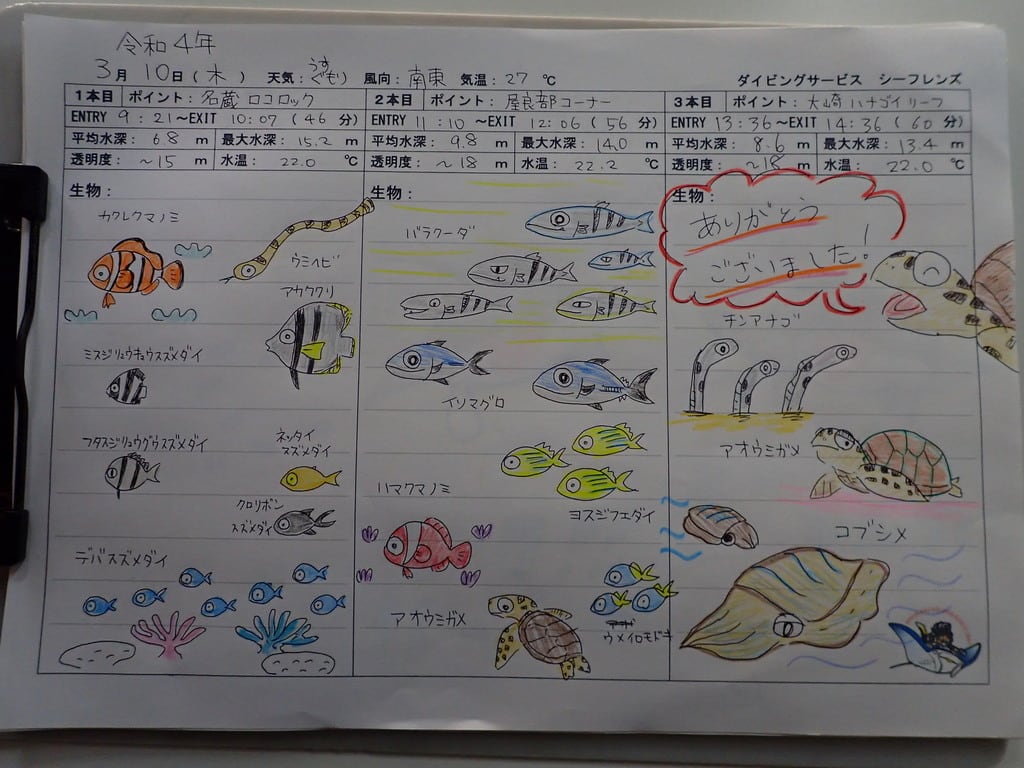 令和4年
3月 10日(木) 天気:うすぐもり 風向:南東 気温:27 ℃ ダイビングサービス シーフレンズ
1本目 ポイント:名蔵 ロコロック
ENTRY 9:21~EXIT 10:07 (46 分)
平均水深: 6.8 m 最大水深: 15.2 m
透明度: ~15 m 水温: 22.0 ℃
生物:
カクレクマノミ
ウミヘビ
アカククリ
ミスジリュウキュウスズメダイ
フタスジリュウグウスズメダイ
ネッタイ
スズメダイ
クロリボン
スズメダイ
デバスズメダイ
2本目 ポイント:屋良部コーナー
ENTRY 11:10 ~EXIT 12:06 (56 分)
平均水深: 9.8 m 最大水深: 14.0 m
透明度: ~18 m 水温: 22.2 ℃
生物:
バラクーダ
イソマグロ
ハマクマノミ
ヨスジフエダイ
アオウミガメ
ウメイロモドキ
3本目 ポイント:大崎 ハナゴイリーフ
ENTRY 13:36~EXIT 14:36 (60 分)
平均水深: 8.6 m 最大水深: 13.4 m
透明度: ~18 m 水温: 22.0 ℃
生物:
ありがとう
ございました!
チンアナゴ
アオウミガメ
コブシメ